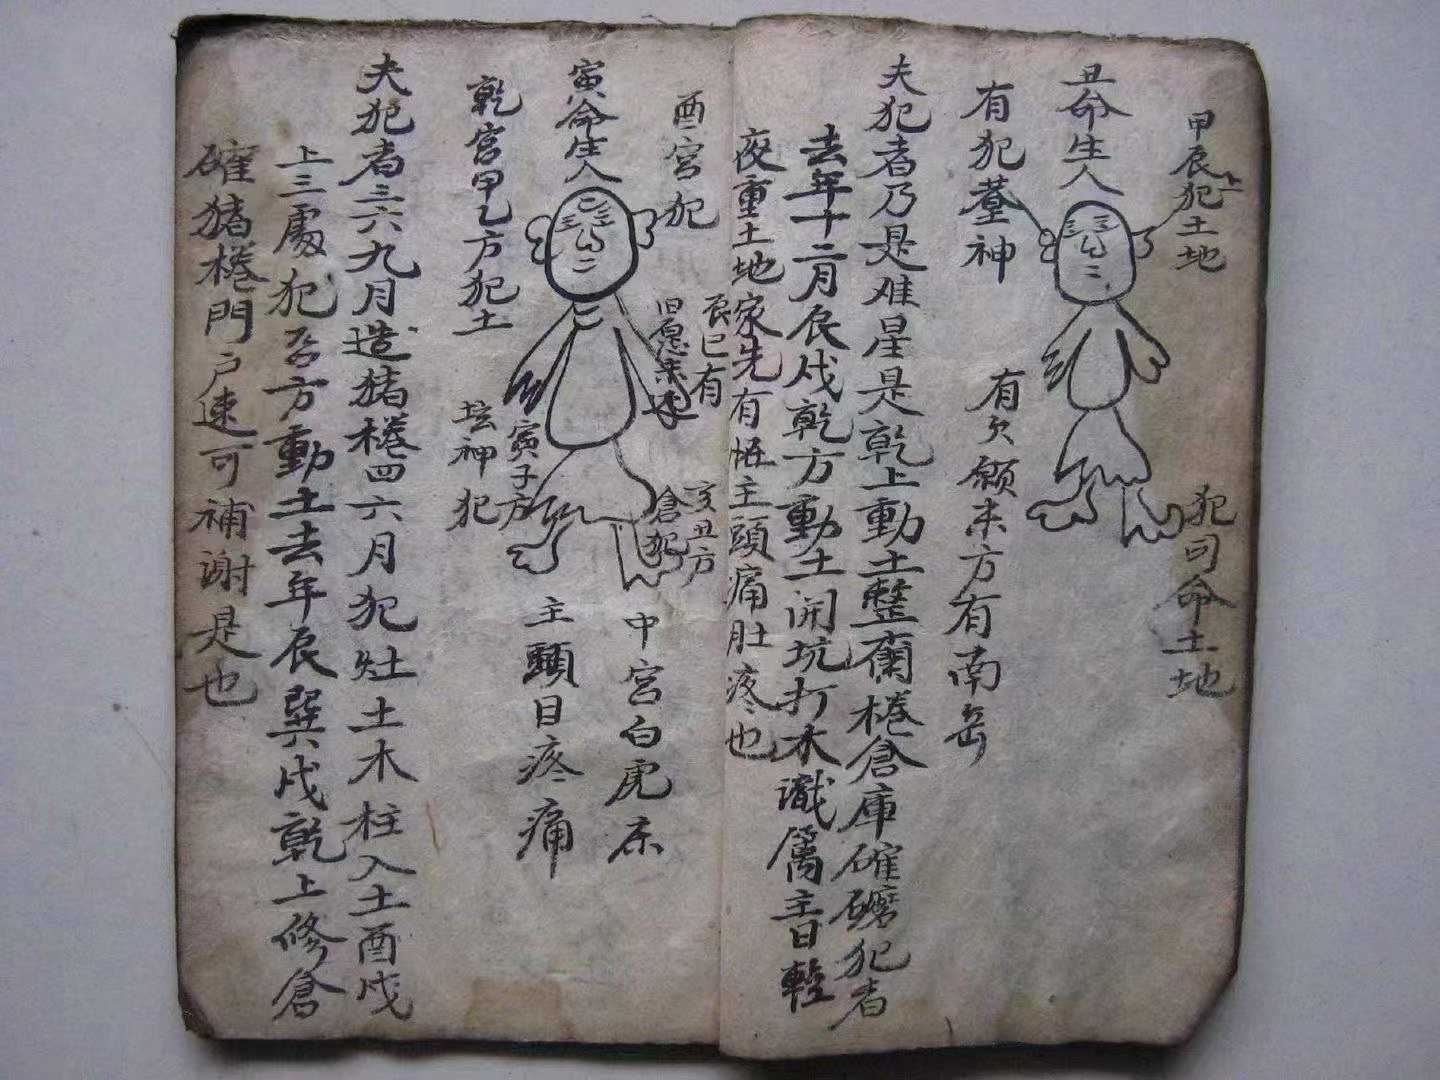 甲辰犯土地
丑命生人
有犯墓神
有欠願未方有南岳
犯司命土地
夫犯者乃是难星是乾上動土整蘭棬倉庫碓磨犯者
去年十二月辰戌乾方動土開坑打木識属主日輕
夜重土地家先有恠主頭痛肚疼也
酉宮犯
寅命生人
乾宮甲乙方犯土
辰巳有
旧愿未还
亥丑方
倉犯
寅子方
坛神犯
中宮白虎床
主頭目疼痛
夫犯者三六九月造猪棬四六月犯灶土木柱入土酉戌
上三處犯否方動土去年辰巽戌乾上修倉
碓猪棬門户速可補謝是也